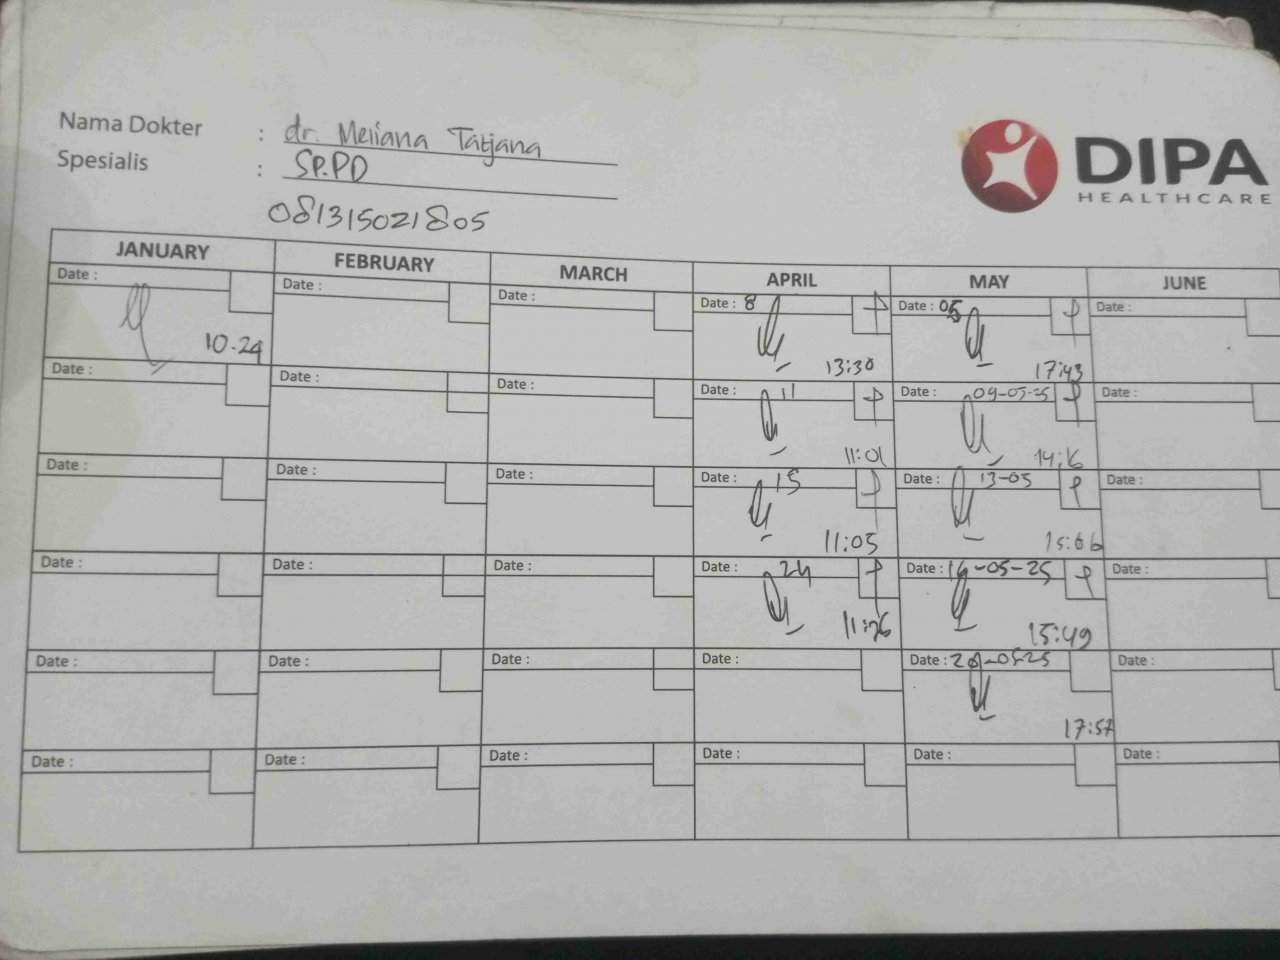 Nama Dokter : dr. Meliana Tatjana
Spesialis : SP.PD
081315021805
DIPA
HEALTHCARE
JANUARY FEBRUARY MARCH APRIL MAY JUNE
Date : Date : Date : Date : 8 Date : 05 Date :
10.24 13:30 17:43
Date : Date : Date : Date : 11 Date : 09-05-25 Date :
11:01 14:16
Date : Date : Date : Date : 15 Date : 13-05 Date :
11:05 15:06
Date : Date : Date : Date : 24 Date : 16-05-25 Date :
15:49
Date : Date : Date : Date : Date : Date :
17:57
Date : Date : Date : Date : Date : Date :